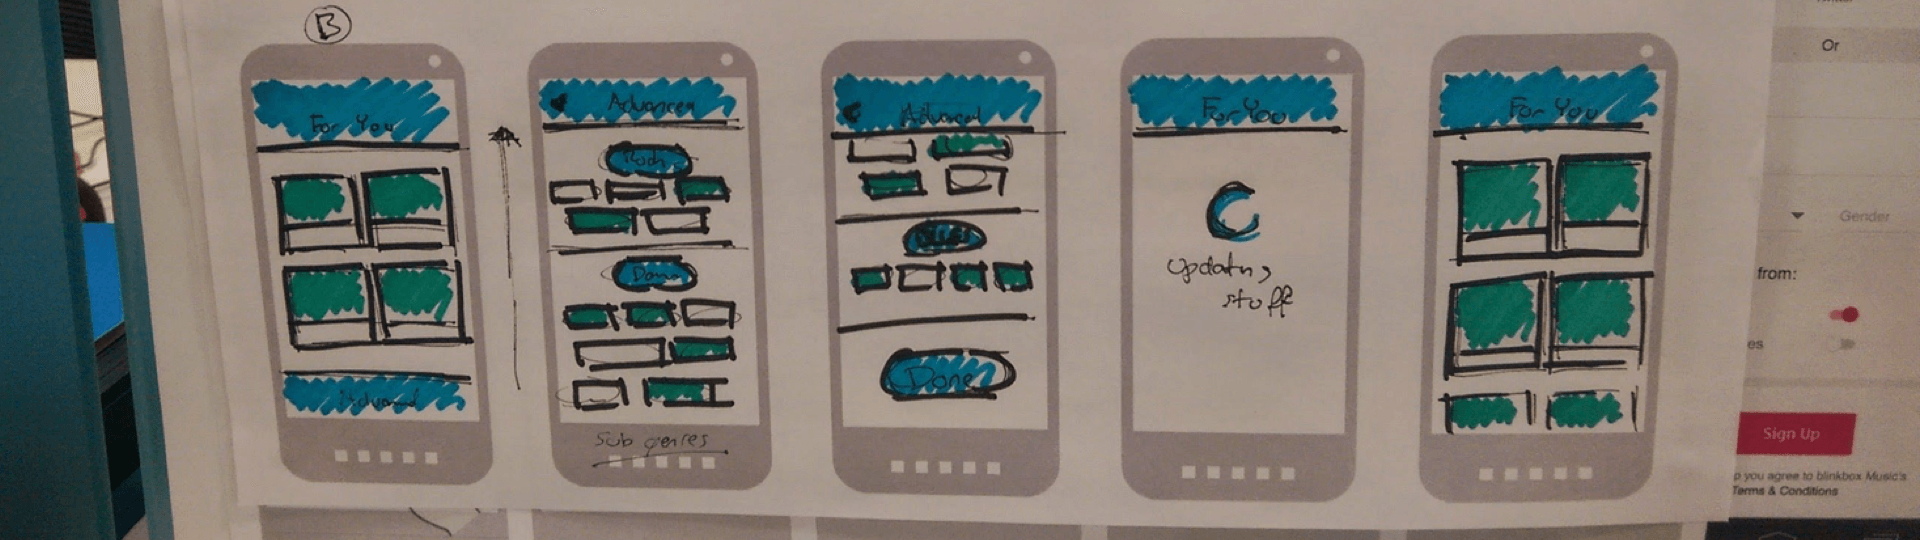 B
For You
Advanced
Advanced
Rock
Dance
sub genres
Advanced
Done
For You
updating
stuff
For You
Or
Gender
from:
es
Sign Up
p you agree to blinkbox Music's
Terms & Conditions